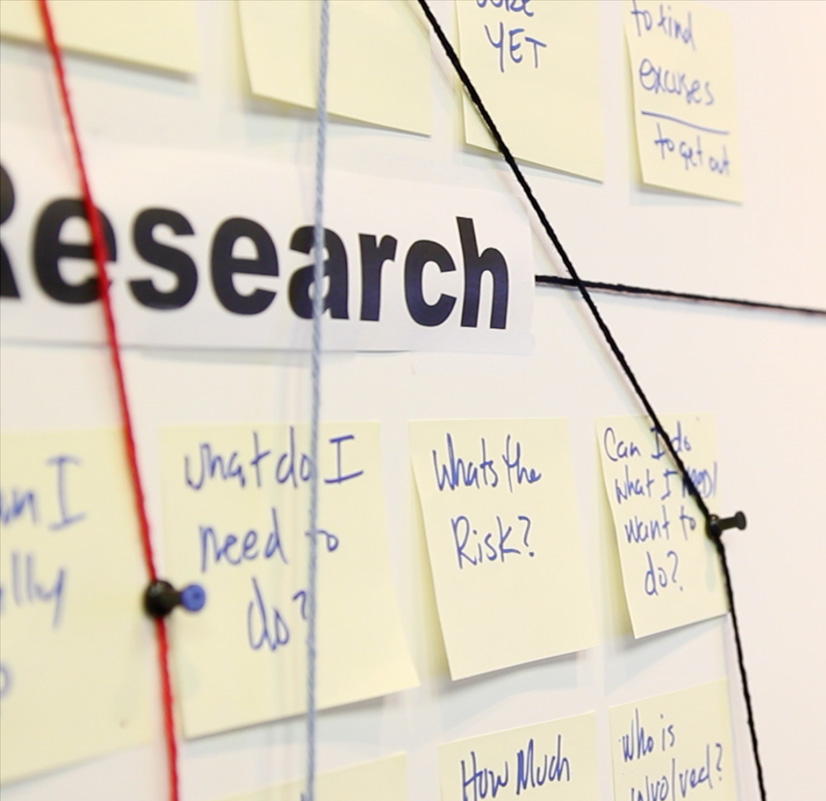 YET
to find
excuses
to get out
Research
an I
what do I
need to
do?
Whats the
Risk?
Can I do
what I NEED/
want to
do?
How Much
Who is
involved?